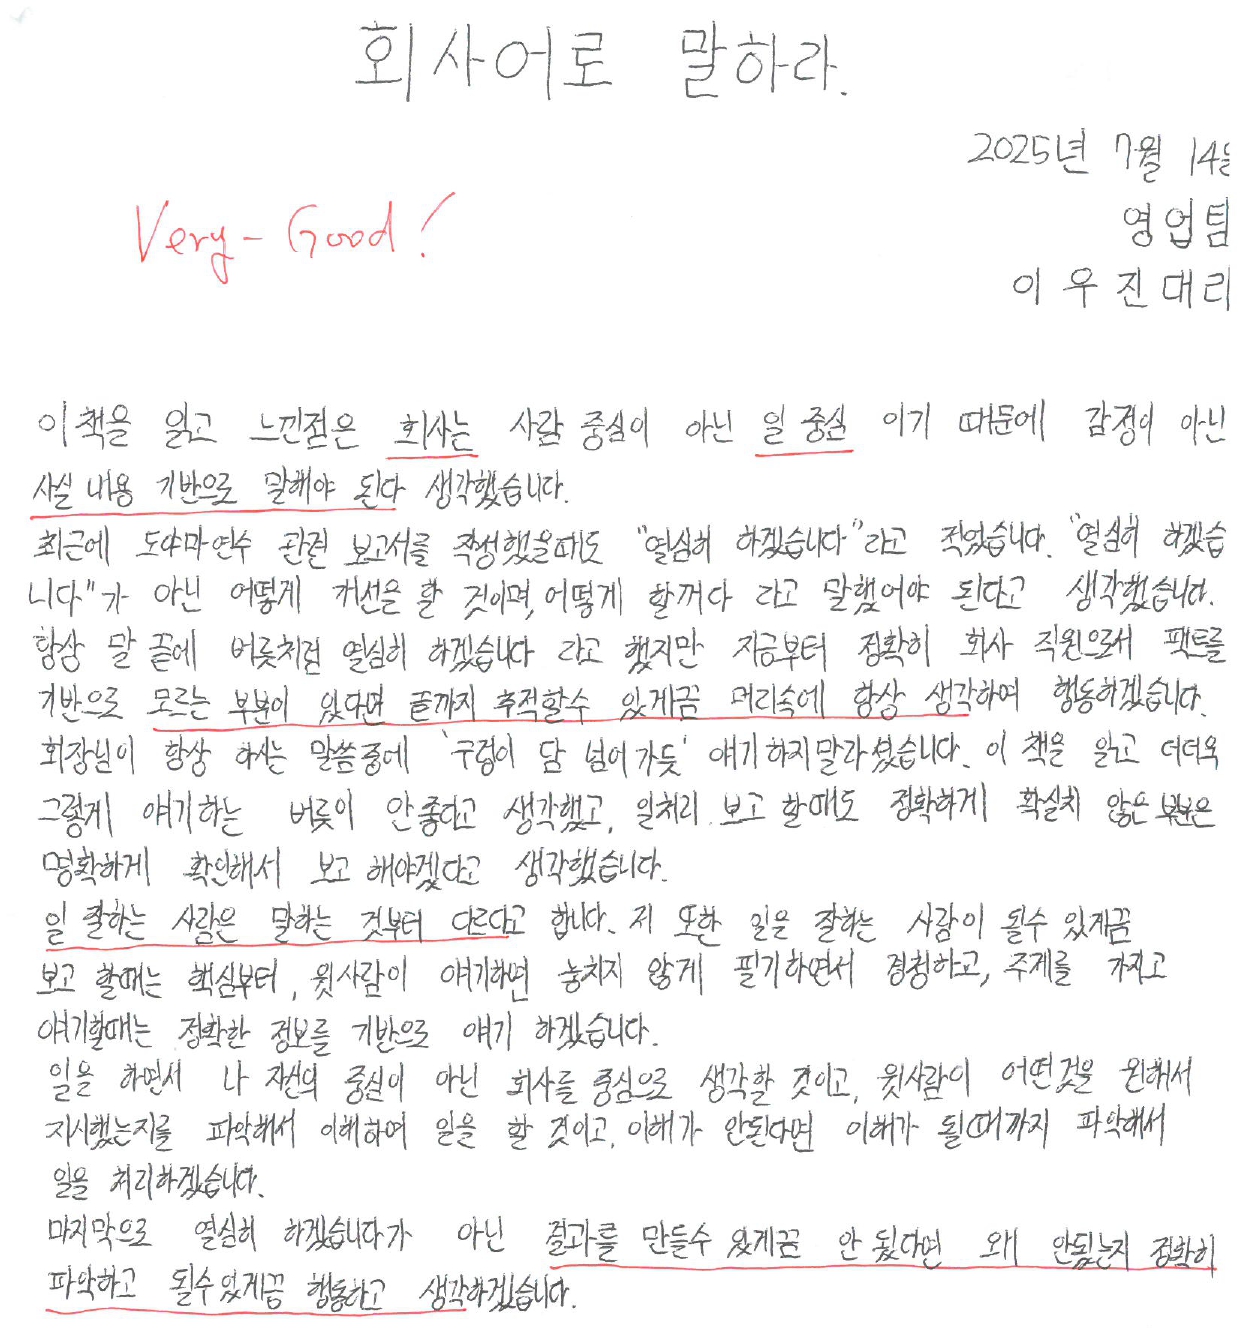 회사어로 말하라.
2025년 7월 14일
Very-Good!
영업팀
이우진대리
이 책을 읽고 느낀점은 회사는 사람 중심이 아닌 일 중심 이기 때문에 감정이 아닌
사실 내용 기반으로 말해야 된다 생각했습니다.
최근에 도야마연수 관련 보고서를 작성했을때도 "열심히 하겠습니다"라고 적었습니다. "열심히 하겠습
니다"가 아닌 어떻게 개선을 할 것이며, 어떻게 할꺼다 라고 말했어야 된다고 생각했습니다.
항상 말 끝에 버릇처럼 열심히 하겠습니다 라고 했지만 지금부터 정확히 회사 직원으로서 팩트를
기반으로 모르는 부분이 있다면 끝까지 추적할수 있게끔 머리속에 항상 생각하며 행동하겠습니다.
회장님이 항상 하시는 말씀중에 '구렁이 담 넘어가듯' 얘기하지말라셨습니다. 이 책을 읽고 더더욱
그렇게 얘기하는 버릇이 안좋다고 생각했고, 일처리 보고 할때도 정확하게 확실치 않은 부분은
명확하게 확인해서 보고 해야겠다고 생각했습니다.
일 잘하는 사람은 말하는 것부터 다르다고 합니다. 저 또한 일을 잘하는 사람이 될수 있게끔
보고 할때는 핵심부터, 윗사람이 얘기하면 놓치지 않게 필기하면서 경청하고, 주제를 가지고
얘기할때는 정확한 정보를 기반으로 얘기 하겠습니다.
일을 하면서 나 자신의 중심이 아닌 회사를 중심으로 생각할 것이고, 윗사람이 어떤것을 원해서
지시했는지를 파악해서 이해하며 일을 할 것이고, 이해가 안된다면 이해가 될때까지 파악해서
일을 처리하겠습니다.
마지막으로 열심히 하겠습니다가 아닌 결과를 만들수 있게끔 안 됐다면 왜 안됐는지 정확히
파악하고 될수있게끔 행동하고 생각하겠습니다.